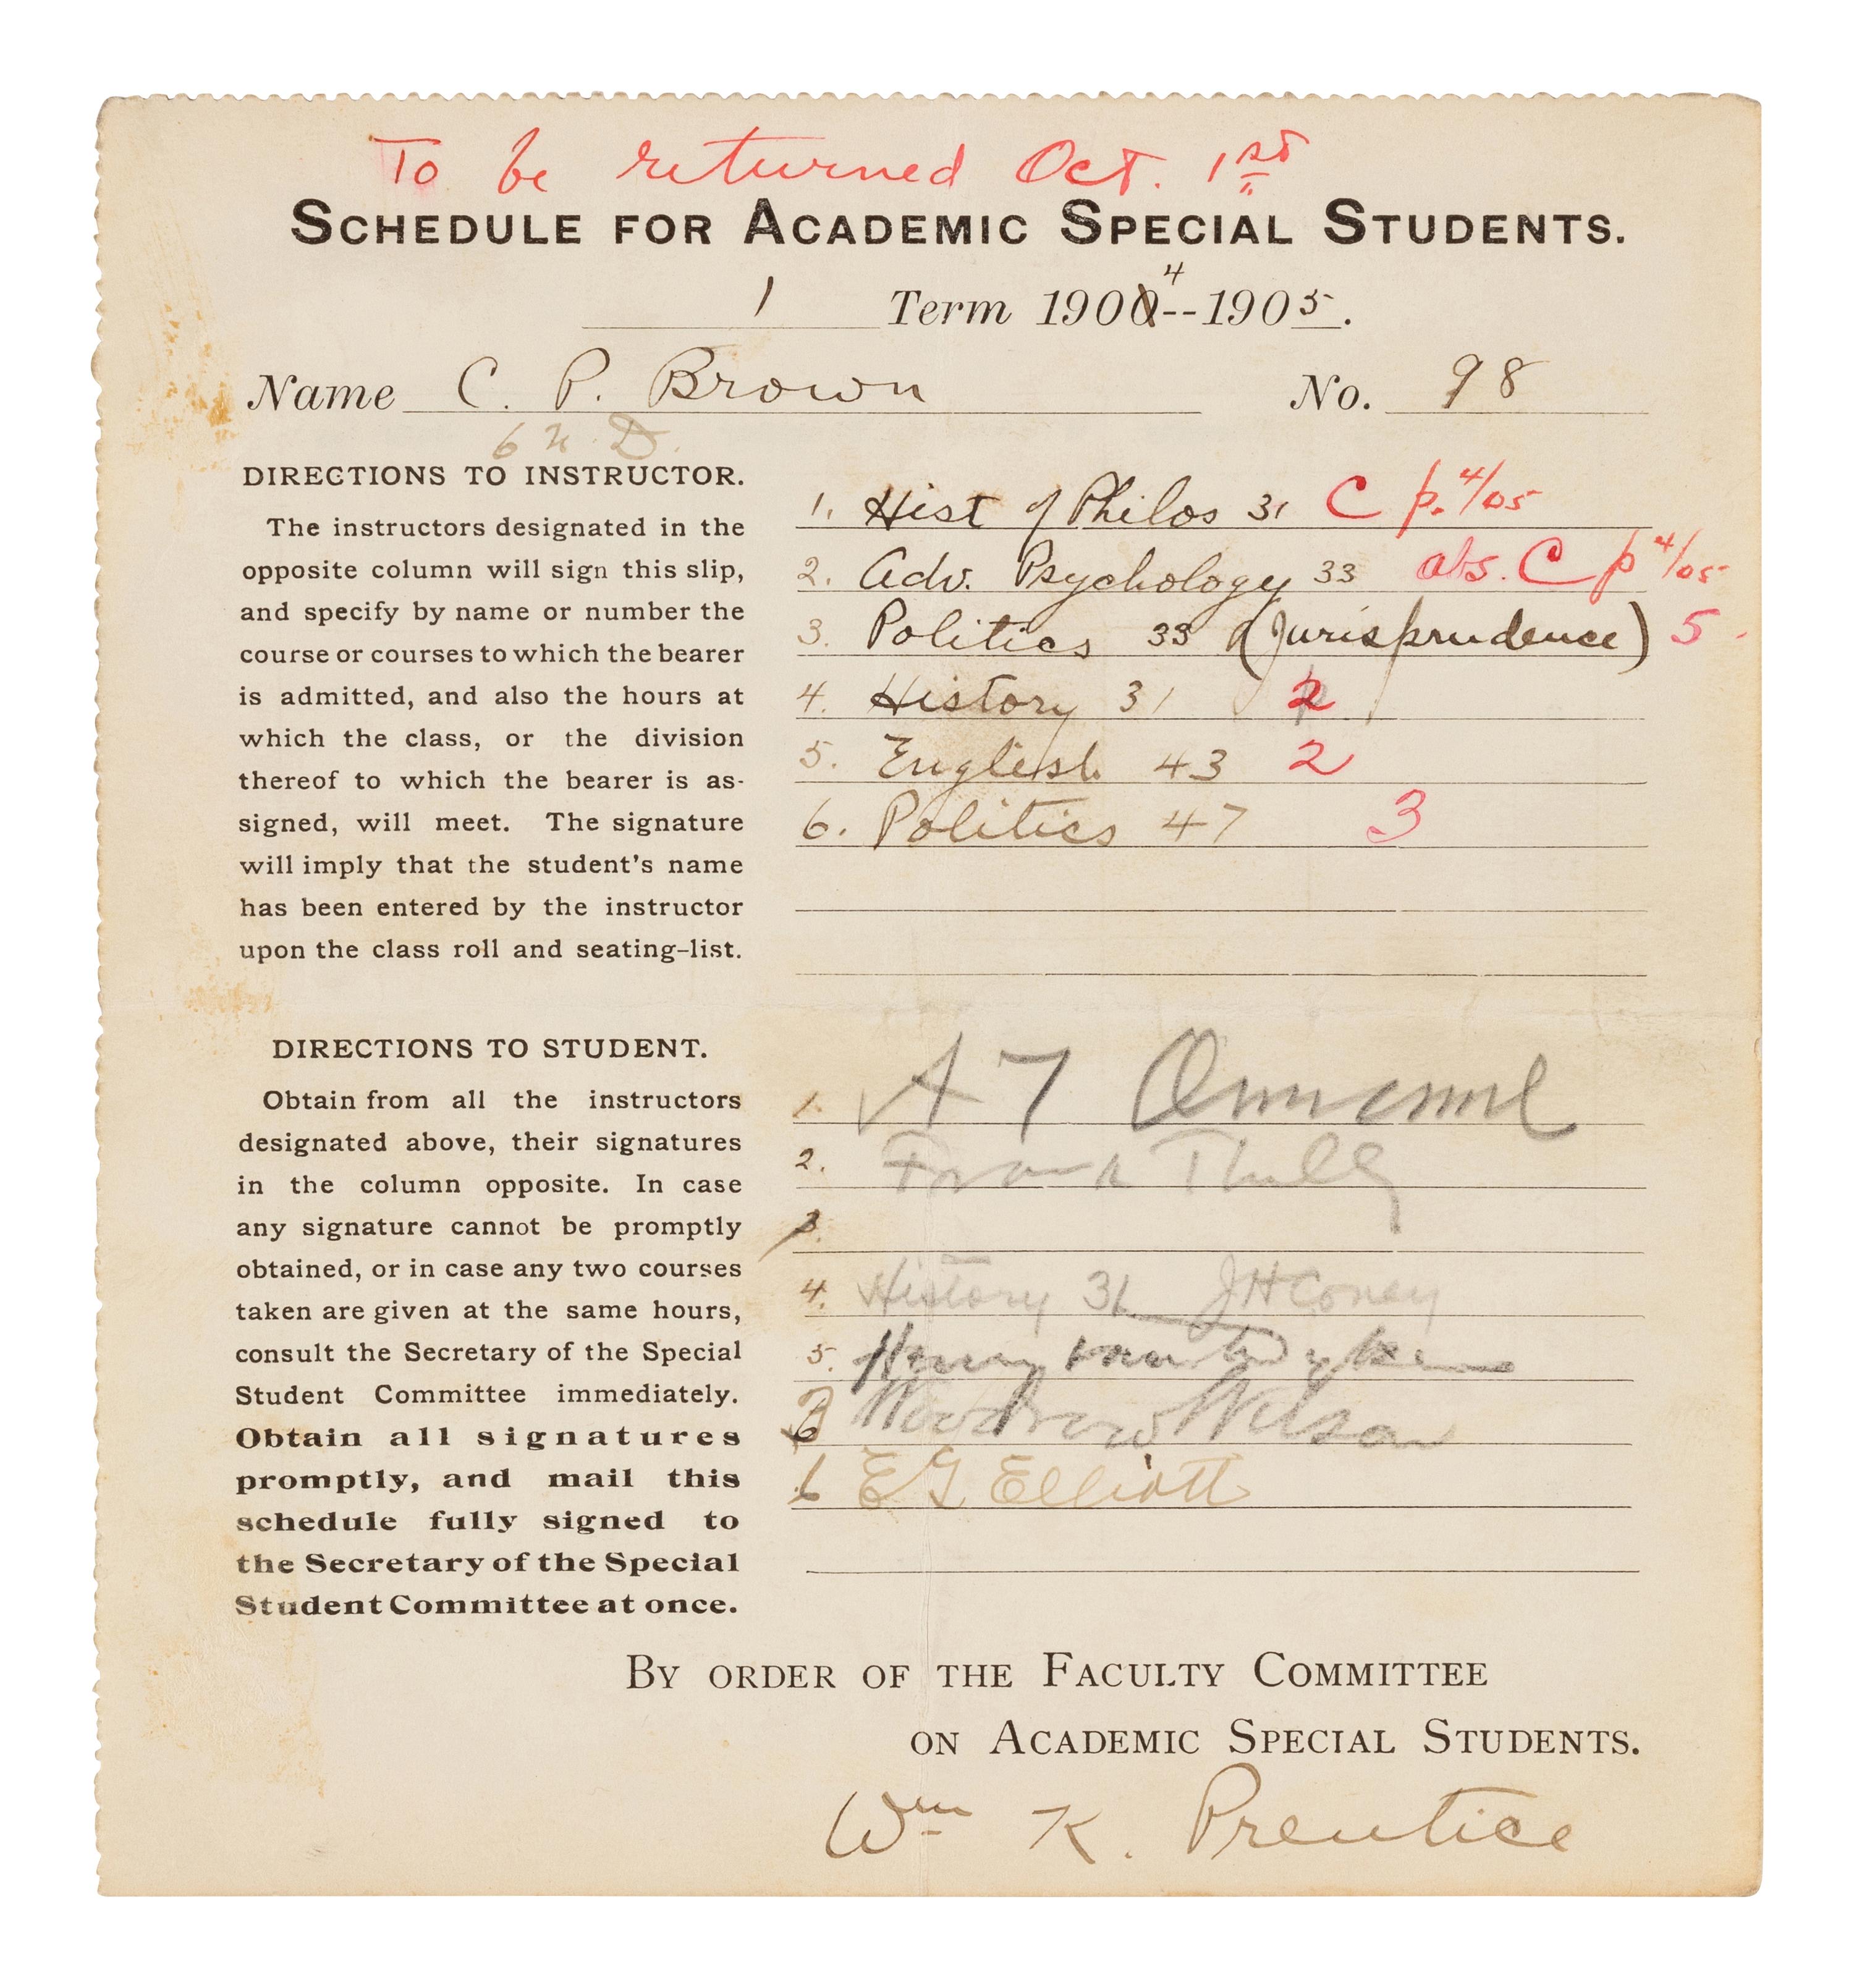 To be returned Oct. 1st
SCHEDULE FOR ACADEMIC SPECIAL STUDENTS.
1 Term 1904--1905.
Name C. P. Brown No. 98
DIRECTIONS TO INSTRUCTOR.
The instructors designated in the
opposite column will sign this slip,
and specify by name or number the
course or courses to which the bearer
is admitted, and also the hours at
which the class, or the division
thereof to which the bearer is as-
signed, will meet. The signature
will imply that the student's name
has been entered by the instructor
upon the class roll and seating-list.
1. Hist of Philos 31 C p. 4/05
2. Adv. Psychology 33 abs. C p 4/05
3. Politics 33 (Jurisprudence) 5
4. History 31 2
5. English 43 2
6. Politics 47 3
DIRECTIONS TO STUDENT.
Obtain from all the instructors
designated above, their signatures
in the column opposite. In case
any signature cannot be promptly
obtained, or in case any two courses
taken are given at the same hours,
consult the Secretary of the Special
Student Committee immediately.
Obtain all signatures
promptly, and mail this
schedule fully signed to
the Secretary of the Special
Student Committee at once.
1. A T Ormond
2. Frank Thilly
3.
4. History 31 J H Coney
5. Henry van Dyke
6 Woodrow Wilson
6 E G Elliott
BY ORDER OF THE FACULTY COMMITTEE
ON ACADEMIC SPECIAL STUDENTS.
Wm K. Prentice